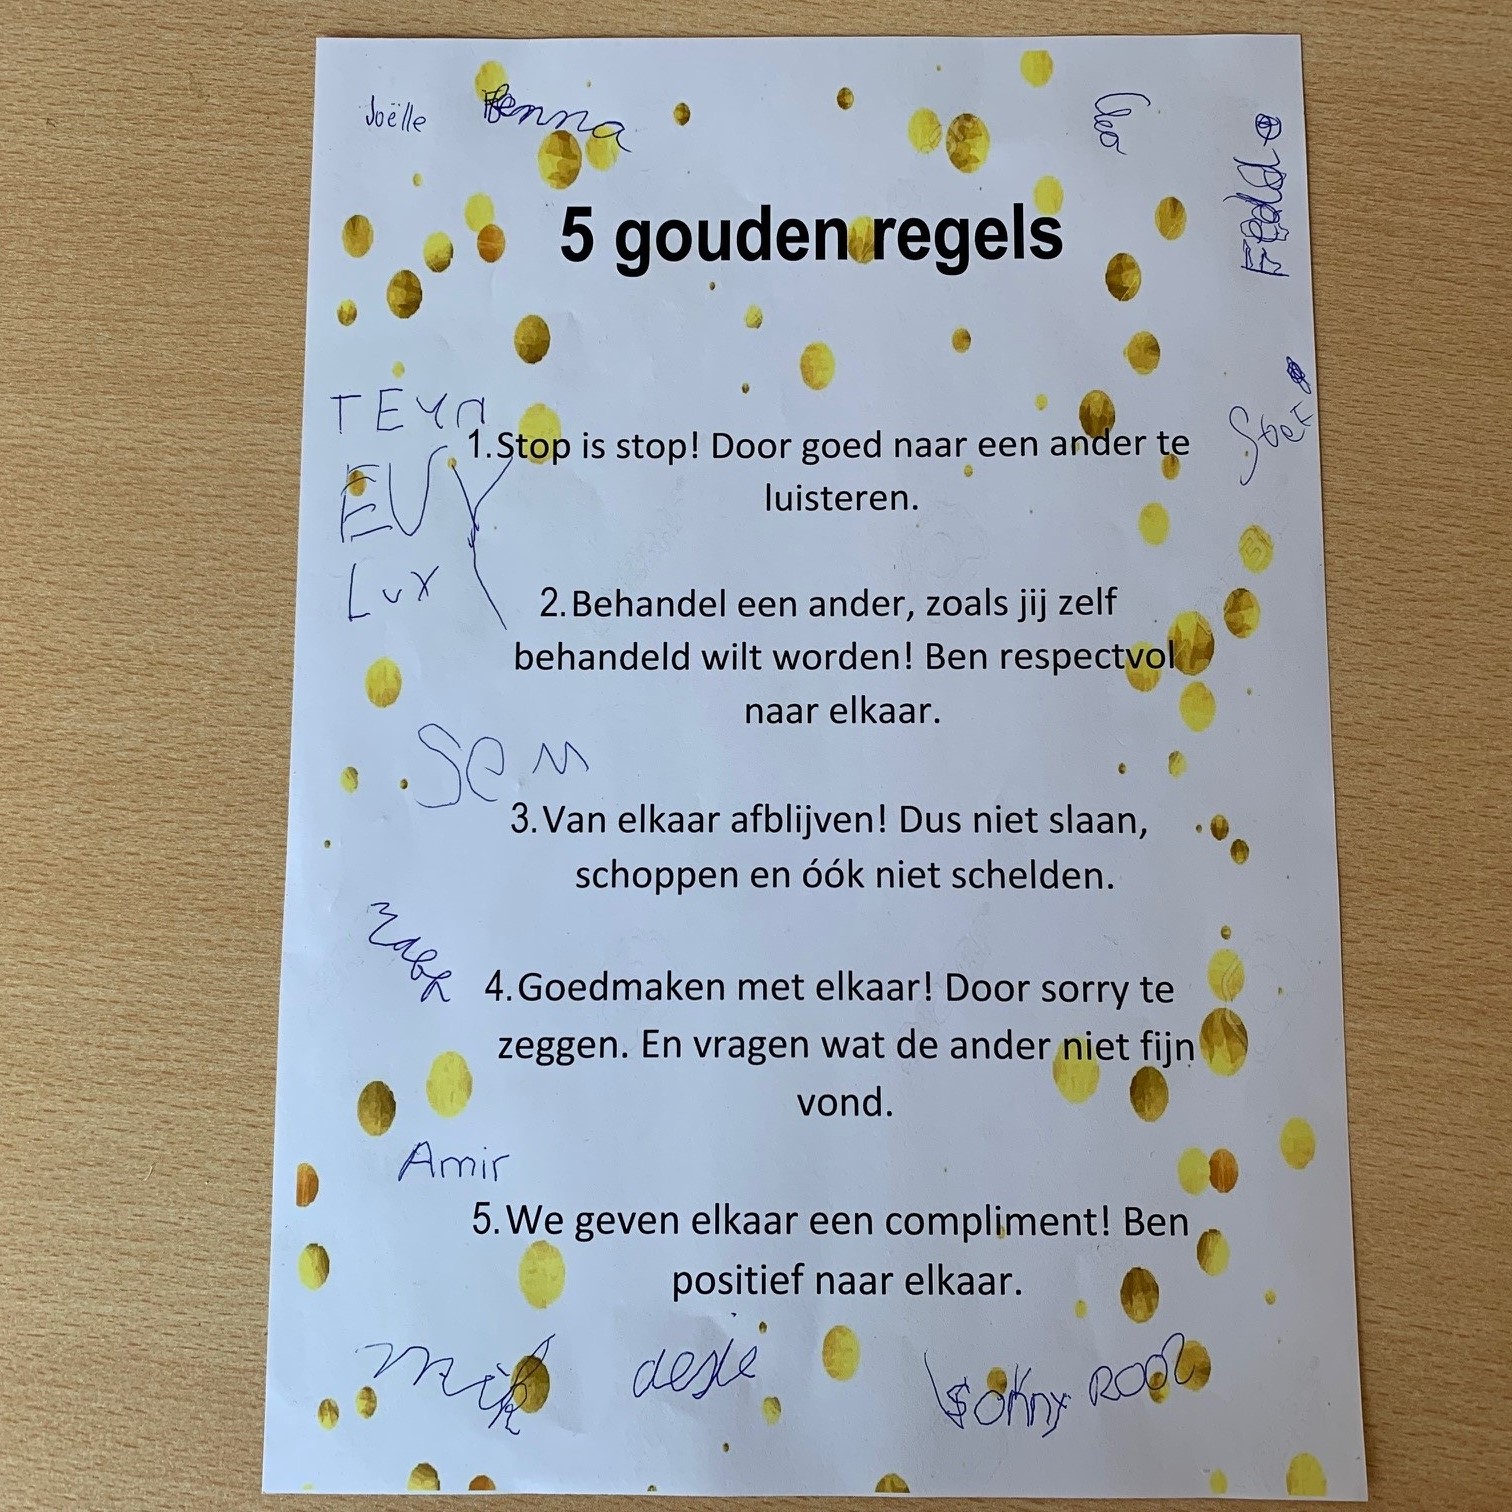 Joëlle
Cleo
5 gouden regels
TEYA
1. Stop is stop! Door goed naar een ander te
luisteren.
EVY
Lux
2. Behandel een ander, zoals jij zelf
behandeld wilt worden! Ben respectvol
naar elkaar.
Sem
3. Van elkaar afblijven! Dus niet slaan,
schoppen en óók niet schelden.
4. Goedmaken met elkaar! Door sorry te
zeggen. En vragen wat de ander niet fijn
vond.
Amir
5. We geven elkaar een compliment! Ben
positief naar elkaar.
Mik